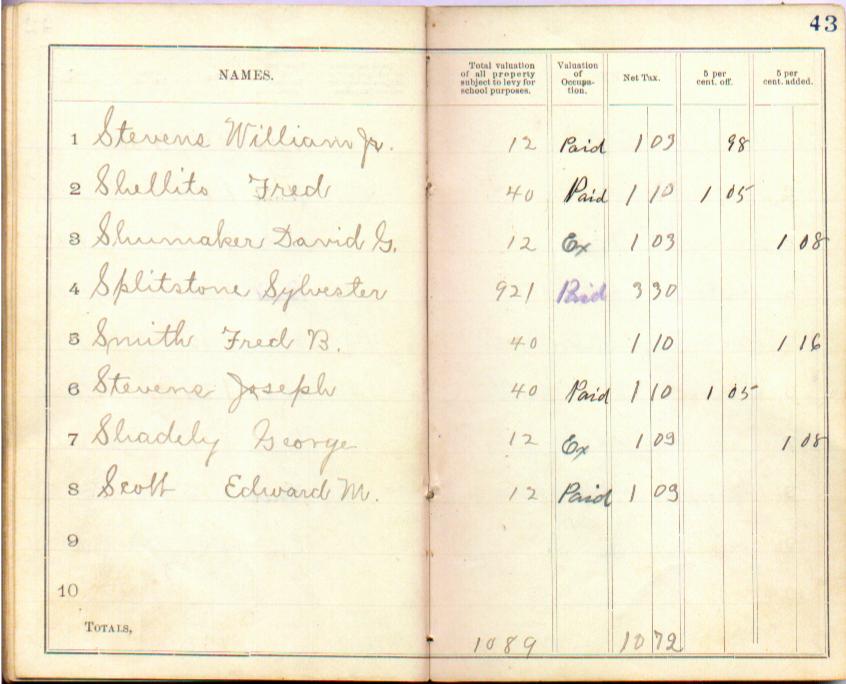 43
NAMES. Total valuation of all property subject to levy for school purposes. Valuation of Occupation. Net Tax. 5 per cent. off. 5 per cent. added.
1 Stevens William Jr. 12 Paid 1 03 98
2 Shellito Fred 40 Paid 1 10 1 05
3 Shumaker David G. 12 Ex 1 03 1 08
4 Splitstone Sylvester 921 Paid 3 30
5 Smith Fred B. 40 1 10 1 16
6 Stevens Joseph 40 Paid 1 10 1 05
7 Shadely George 12 Ex 1 03 1 08
8 Scott Edward M. 12 Paid 1 03
9
10
TOTALS, 1089 10 72